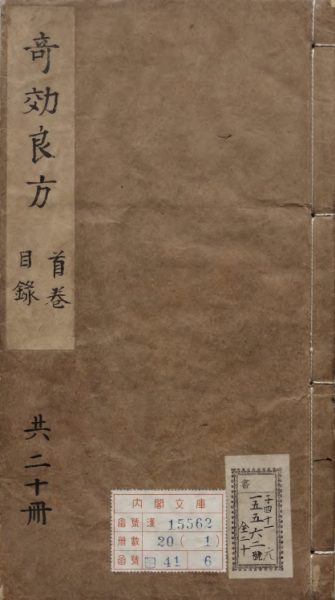 奇効良方
首卷
目錄
共二十冊
內閣文庫
番號 漢 15562
冊數 20 ( 1 )
函號 41 6
書
一五五六二號
全二十
一